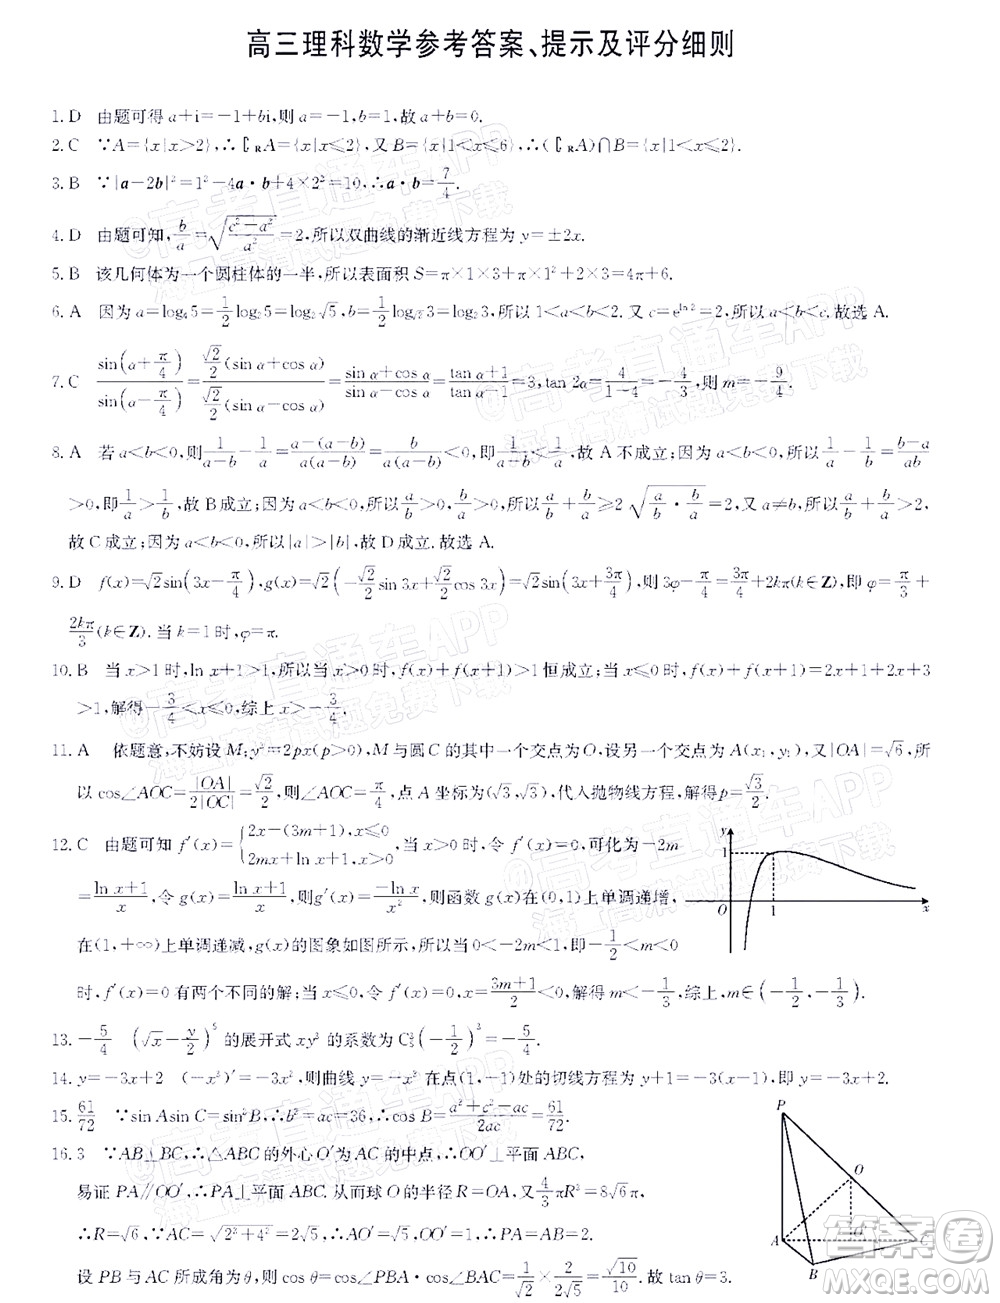 高三理科数学参考答案、提示及评分细则
1. D 由题可得 a+i=-1+bi,则 a=-1,b=1,故 a+b=0.
2. C ∵A={x|x>2},∴∁_R A={x|x≤2},又 B={x|1<x≤6},∴(∁_R A)∩B={x|1<x≤2}.
3. B ∵|a-2b|²=1²-4a·b+4×2²=10,∴a·b=7/4.
4. D 由题可知,b/a=√((c²-a²)/a²)=2,所以双曲线的渐近线方程为 y=±2x.
5. B 该几何体为一个圆柱体的一半,所以表面积 S=π×1×3+π×1²+2×3=4π+6.
6. A 因为 a=log₄5=1/2 log₂5=log₂√5,b=1/2 log_√2 3=log₂3,所以 1<a<b<2.又 c=e^(ln 2)=2,所以 a<b<c.故选 A.
7. C sin(α+π/4)/sin(α-π/4)=(√2/2(sin α+cos α))/(√2/2(sin α-cos α))=(sin α+cos α)/(sin α-cos α)=(tan α+1)/(tan α-1)=3,tan 2α=4/(1-4)=-4/3,则 m=-9/4.
8. A 若 a<b<0,则 1/(a-b)-1/a=(a-(a-b))/(a(a-b))=b/(a(a-b))<0,即 1/(a-b)<1/a,故 A 不成立;因为 a<b<0,所以 1/a-1/b=(b-a)/ab
>0,即 1/a>1/b,故 B 成立;因为 a<b<0,所以 a/b>0,b/a>0,所以 a/b+b/a≥2√(a/b·b/a)=2,因为 a≠b,所以 a/b+b/a>2,
故 C 成立;因为 a<b<0,所以|a|>|b|,故 D 成立.故选 A.
9. D f(x)=√2sin(3x-π/4),g(x)=√2(-√2/2 sin 3x+√2/2 cos 3x)=√2sin(3x+3π/4),则 3φ-π/4=3π/4+2kπ(k∈Z),即 φ=π/3+
2kπ/3(k∈Z).当 k=1 时,φ=π.
10. B 当 x>1 时,ln x+1>1,所以当 x>0 时,f(x)+f(x+1)>1 恒成立;当 x≤0 时,f(x)+f(x+1)=2x+1+2x+3
>1,解得-3/4<x≤0,综上,x>-3/4.
11. A 依题意,不妨设 M:y²=2px(p>0),M 与圆 C 的其中一个交点为 O,设另一个交点为 A(x₁,y₁),又|OA|=√6,所
以 cos∠AOC=|OA|/2|OC|=√2/2,则∠AOC=π/4,点 A 坐标为(√3,√3),代入抛物线方程,解得 p=√3/2.
12. C 由题可知 f′(x)={2x-(3m+1),x≤0
2mx+ln x+1,x>0,当 x>0 时,令 f′(x)=0,可化为-2m
=(ln x+1)/x,令 g(x)=(ln x+1)/x,则 g′(x)=-ln x/x²,则函数 g(x)在(0,1)上单调递增,
在(1,+∞)上单调递减,g(x)的图象如图所示,所以当 0<-2m<1,即-1/2<m<0
时,f′(x)=0 有两个不同的解;当 x≤0,令 f′(x)=0,x=(3m+1)/2<0,解得 m<-1/3,综上,m∈(-1/2,-1/3).
y
1
O
1
x
13. -5/4 (√x-y/2)⁵的展开式 xy³ 的系数为 C₅³(-1/2)³=-5/4.
14. y=-3x+2 (-x³)′=-3x²,则曲线 y=-x³ 在点(1,-1)处的切线方程为 y+1=-3(x-1),即 y=-3x+2.
15. 61/72 ∵sin Asin C=sin²B,∴b²=ac=36,∴cos B=(a²+c²-ac)/2ac=61/72.
16. 3 ∵AB⊥BC,∴△ABC 的外心 O′为 AC 的中点,∴OO′⊥平面 ABC,
易证 PA∥OO′,∴PA⊥平面 ABC.从而球 O 的半径 R=OA,又 4/3 πR³=8√6π,
∴R=√6,∵AC=√(2²+4²)=2√5,∴AO′=√5,OO′=1,∴PA=AB=2.
设 PB 与 AC 所成角为 θ,则 cos θ=cos∠PBA·cos∠BAC=1/√2×2/(2√5)=√10/10.故 tan θ=3.
P
O
A
O′
C
B
@高考直通车APP
海量高清试题免费下载
答案卷
MXQE.COM